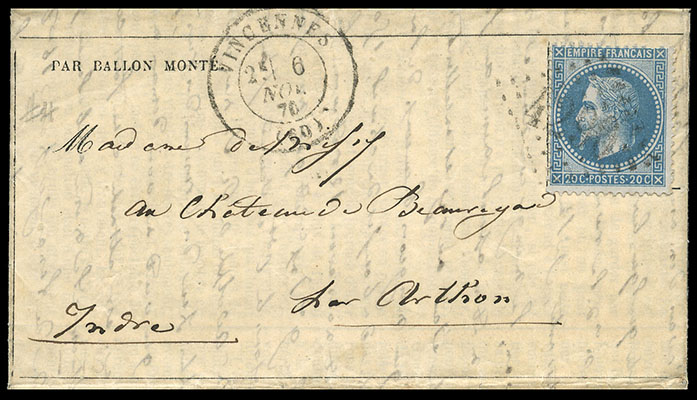 PAR BALLON MONTÉ.
VINCENNES
2E 6
NOV.
70
(60)
EMPIRE FRANÇAIS
20C·POSTES·20C
Madame de
au Château de Beauregard
par Arthon
Indre